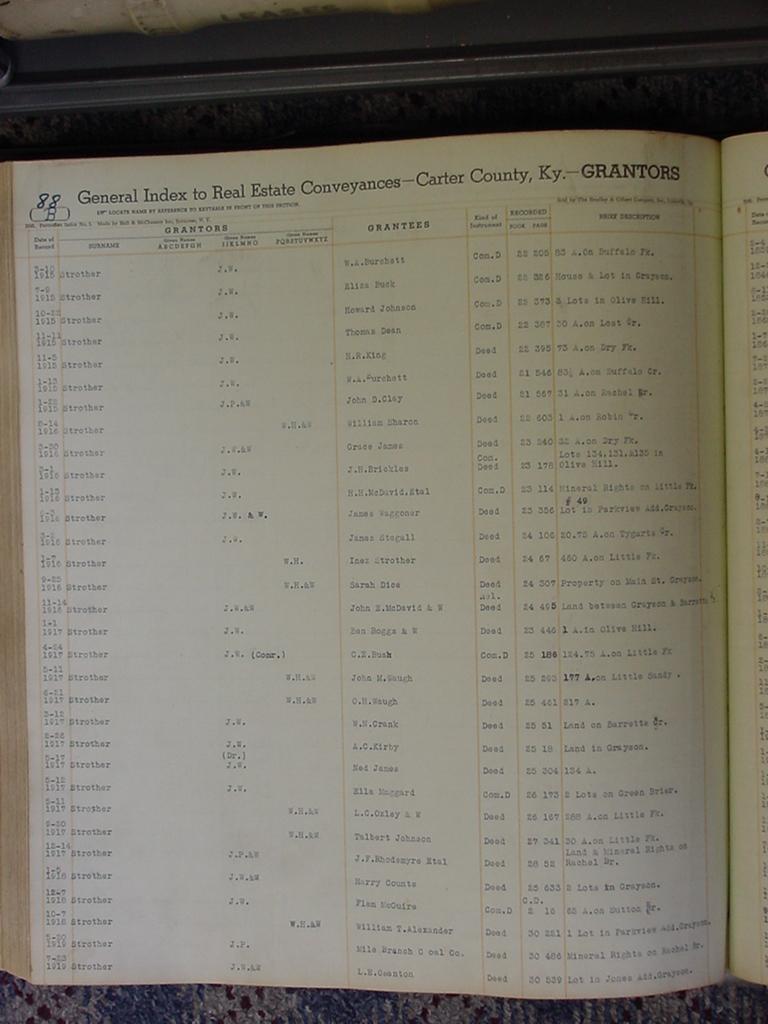 LEASES
88
B
General Index to Real Estate Conveyances—Carter County, Ky.—GRANTORS
LOCATE NAME BY REFERENCE TO KEYTABLE IN FRONT OF THIS SECTION
GRANTORS GRANTEES Kind of Instrument RECORDED BRIEF DESCRIPTION
Date of Record SURNAME Given Names ABCDEFGH Given Names IJKLMNO Given Names PQRSTUVWXYZ BOOK PAGE
1915 Strother J.W. W.A.Burchett Com.D 22 205 83 A.On Buffalo Fk.
7-9 1915 Strother J.W. Eliza Buck Com.D 22 326 House & Lot in Grayson.
1915 Strother J.W. Howard Johnson Com.D 22 373 3 Lots in Olive Hill.
11-11 1915 Strother J.W. Thomas Dean Com.D 22 387 30 A.on Lost Cr.
11-5 1915 Strother J.W. H.R.King Deed 22 395 73 A.on Dry Fk.
1-13 1915 Strother J.W. W.A.Burchett Deed 21 546 83½ A.on Buffalo Cr.
1915 Strother J.P.&W John D.Clay Deed 21 567 31 A.on Rachel Br.
1916 Strother W.H.&W William Sharon Deed 22 603 1 A.on Robin Cr.
1916 Strother J.W.&W Grace James Deed 23 240 32 A.on Dry Fk.
1916 Strother J.W. J.H.Brickles Com. Deed 23 178 Lots 134,131,&135 in Olive Hill.
1-13 1916 Strother J.W. H.H.McDavid,Etal Com.D 23 114 Mineral Rights on Little Fk.
1916 Strother J.W. & W. James Waggoner Deed 23 356 Lot # 49 in Parkview Add.Grayson.
1916 Strother J.W. James Stegall Deed 24 106 20.75 A.on Tygarts Cr.
1-7 1916 Strother W.H. Inez Strother Deed 24 67 460 A.on Little Fk.
9-25 1916 Strother W.H.&W Sarah Dice Deed 24 307 Property on Main St. Grayson.
11-14 1916 Strother J.W.&W John E.McDavid & W Rel. Deed 24 495 Land between Grayson & Barretts
1-1 1917 Strother J.W. Ben Boggs & W Deed 23 446 1 A.in Olive Hill.
4-24 1917 Strother J.W. (Comr.) C.Z.Bush Com.D 25 186 124.75 A.on Little Fk
5-11 1917 Strother W.H.&W John M.Waugh Deed 25 293 177 A.on Little Sandy .
6-21 1917 Strother W.H.&W O.H.Waugh Deed 25 461 217 A.
3-12 1917 Strother J.W. W.N.Crank Deed 25 51 Land on Barretts Cr.
1917 Strother J.W. A.C.Kirby Deed 25 18 Land in Grayson.
5-17 1917 Strother (Dr.) J.W. Ned James Deed 25 304 134 A.
5-12 1917 Strother J.W. Ella Maggard Com.D 26 173 2 Lots on Green Brier.
1917 Strother W.H.&W L.C.Oxley & W Deed 26 167 288 A.on Little Fk.
Strother W.H.&W Talbert Johnson Deed 27 341 30 A.on Little Fk.
12-14 1917 Strother J.P.&W J.F.Rhodemyre Etal Deed 28 52 Land & Mineral Rights on Rachel Br.
1918 Strother J.W.&W Harry Counts Deed 25 633 2 Lots in Grayson.
12-7 1918 Strother J.W. Flem McGuire Com.D C.D. 2 16 65 A.on Sutton Br.
10-7 1918 Strother W.H.&W William T.Alexander Deed 30 221 1 Lot in Parkview Add.Grayson.
1919 Strother J.P. Mile Branch C oal Co. Deed 30 486 Mineral Rights on Rachel Br.
1919 Strother J.W.&W Deed 30 539 Lot in Jones Add.Grayson.